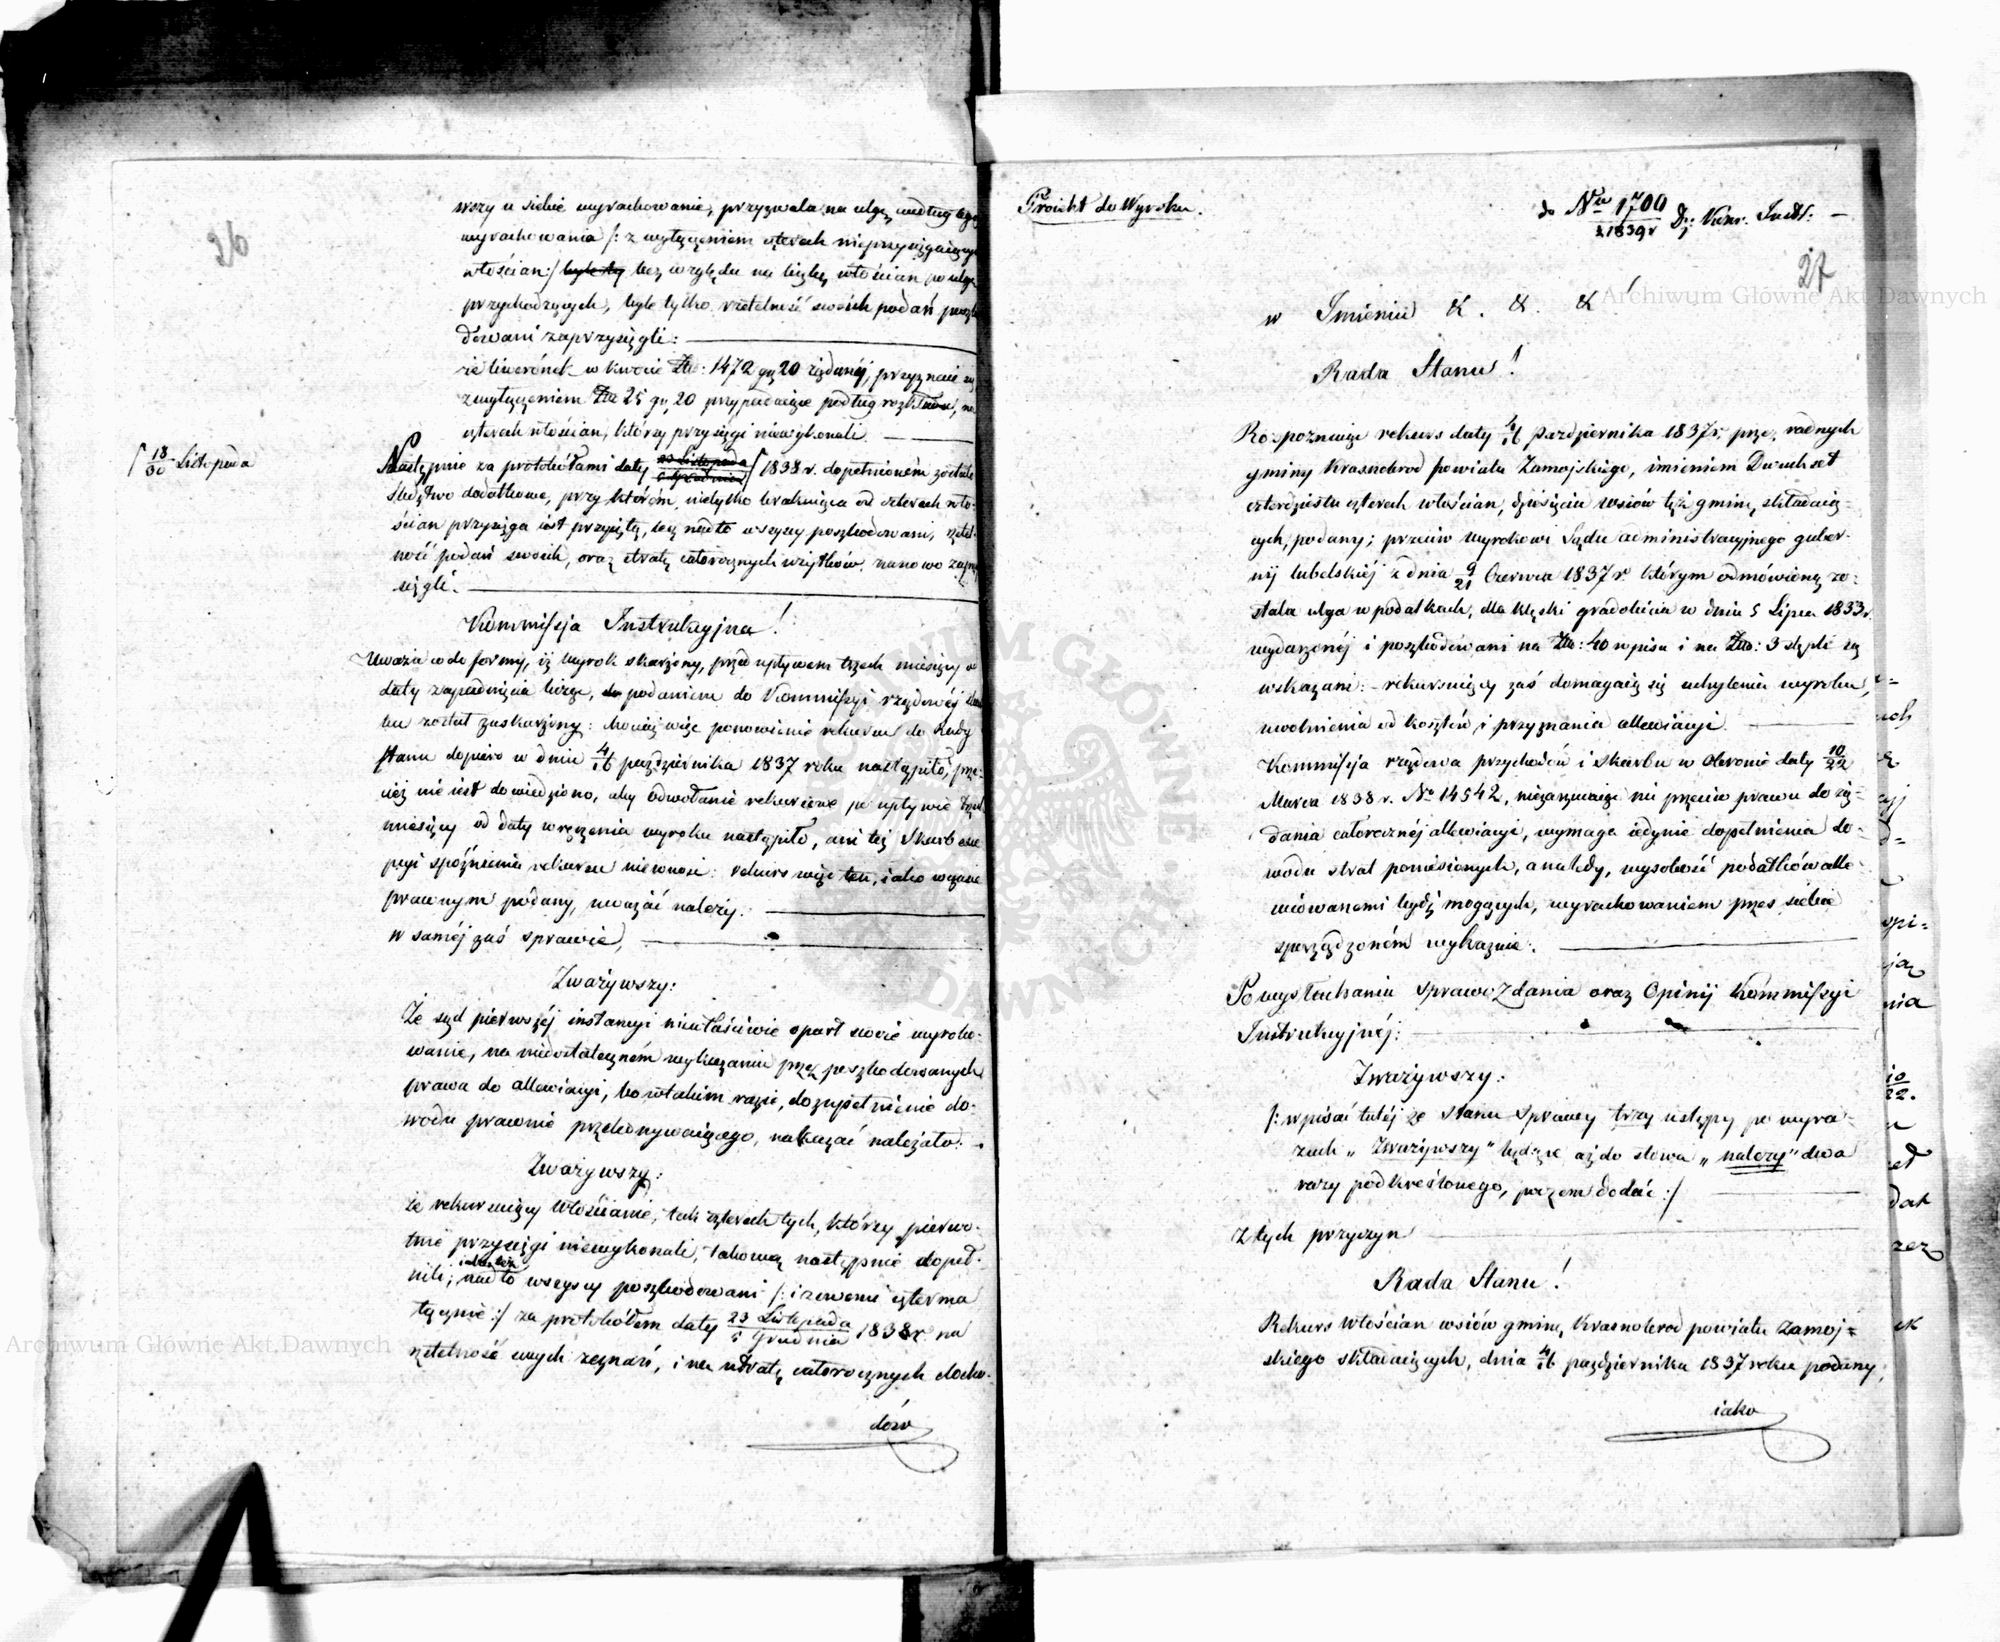 26
wszy u siebie wyrachowanie, przyzwala na ulgę według tego
wyrachowania /: z wyłączeniem czterech nieprzysięgających
włościan :/ bez względu na liczbę włościan po ulgę
przychodzących, byle tylko rzetelność swoich podań poszko
dowani zaprzysięgli:
w kwocie Złt: 1472 gr 20 żądanej, przyznaie się
z wyłączeniem Złt 25 gr, 20 przypadaiące podług rozkładu, na
czterech włościan, którzy przysięgi niewykonali.
18/30 Listopada
Następnie za protokółami daty 1838 r. dopełnioném zostało
Śledztwo dodatkowe, przy którém, nietylko brakuiąca od czterech wło-
ścian przysięga iest przyięta, lecz nadto wszyscy poszkodowani, rzetel-
ność podań swoich, oraz utratę całorocznych użytków, nanowo zaprzy
sięgli.
Kommissja Instrukcyjna!
Uważa co do formy, iż wyrok skarżony, przed upływem trzech miesięcy od
daty zapadnięcia licząc, podaniem do Kommissyi rządowéj skar
bu został zaskarżony: Maciąż więc ponowienie rekursu do Rady
Stanu dopiero w dniu 4/16 października 1837 roku nastąpiło, prze-
cież nie iest dowiedziono, aby odwołanie rekursowe po upływie trzech
miesięcy od daty wręczenia wyroku nastąpiło, ani też Skarb exce
pcyi spóźnienia rekursu niewnosi: rekurs więc ten, iako w czasie
prawnym podany, uważać należy.
w saméj zaś sprawie,
Zważywszy:
Że sąd pierwszéj instancyi niewłaściwie oparł swoie wyroko-
wanie, na niedostateczném wykazaniu przez poszkodowanych
prawa do allewiacyi, bo w takim razie, do zupełnienie do-
wodu prawnie przekonywaiącego, nakazać należało.
Zważywszy:
że rekursuiący Włościanie, iak czterech tych, którzy pierwo-
tnie przysięgi niewykonali, takową następnie dopeł-
nili; nadto wszyscy poszkodowani /: i z owemi czterma
łącznie :/ za protokółem daty 23 Listopada / 5 Grudnia 1838 r. na
rzetelność swych zeznań, i na utratę całorocznych docho-
dów
Proiekt do Wyroku.
do Nru 1700 / z 1839 r Dz: Kom. Instr: —
27
w Imieniu &. &. &.
Rada Stanu!
Rozpoznaiąc rekurs daty 4/16 Października 1837 r. przez radnych
gminy Krasnobrod powiatu Zamojskiego, imieniem Dwuchset
czterdziestu czterech włościan, dziesięciu wsiów téż gminę składaią-
cych, podany; przeciw wyrokowi Sądu administracyjnego guber-
nij lubelskiéj z dnia 9/21 Czerwca 1837 r. którym odmówioną zo-
stała ulga w podatkach, dla klęski gradobicia w dniu 5 Lipca 1833 r.
wydarzonéj i poszkodowani na Złt: 40 wpisu i na Złt: 3 stęple są
wskazani: — rekursuiący zaś domagaią się uchylenia wyroku,
uwolnienia od kosztów i przyznania allewiacyi.
Kommissja rządowa przychodów i skarbu w obronie daty 10/22
Marca 1838 r. No 14542, niezarzucaiąc nic przeciw prawu do żą-
dania całorocznéj allewiacyi, wymaga iedynie dopełnienia do-
wodu strat poniesionych, a nakdy, wysokość podatków alle
wiowanemi bydź mogących, wyrachowaniem przez siebie
sporządzoném wykazuie.
Po wysłuchaniu Sprawozdania oraz Opinij Kommissyi
Instrukcyjnéj:
Zważywszy:
/: wpisać tutéj ze Stanu Sprawy trzy ustępy po wyra-
zach „ Zważywszy" będące aż do słowa „ należy" dwa
razy podkreślonego, poczem dodać :/
Z tych przyczyn
Rada Stanu!
Rekurs Włościan wsiów gminę Krasnobrod powiatu Zamoj-
skiego składaiących, dnia 4/16 października 1837 roku podany,
iako